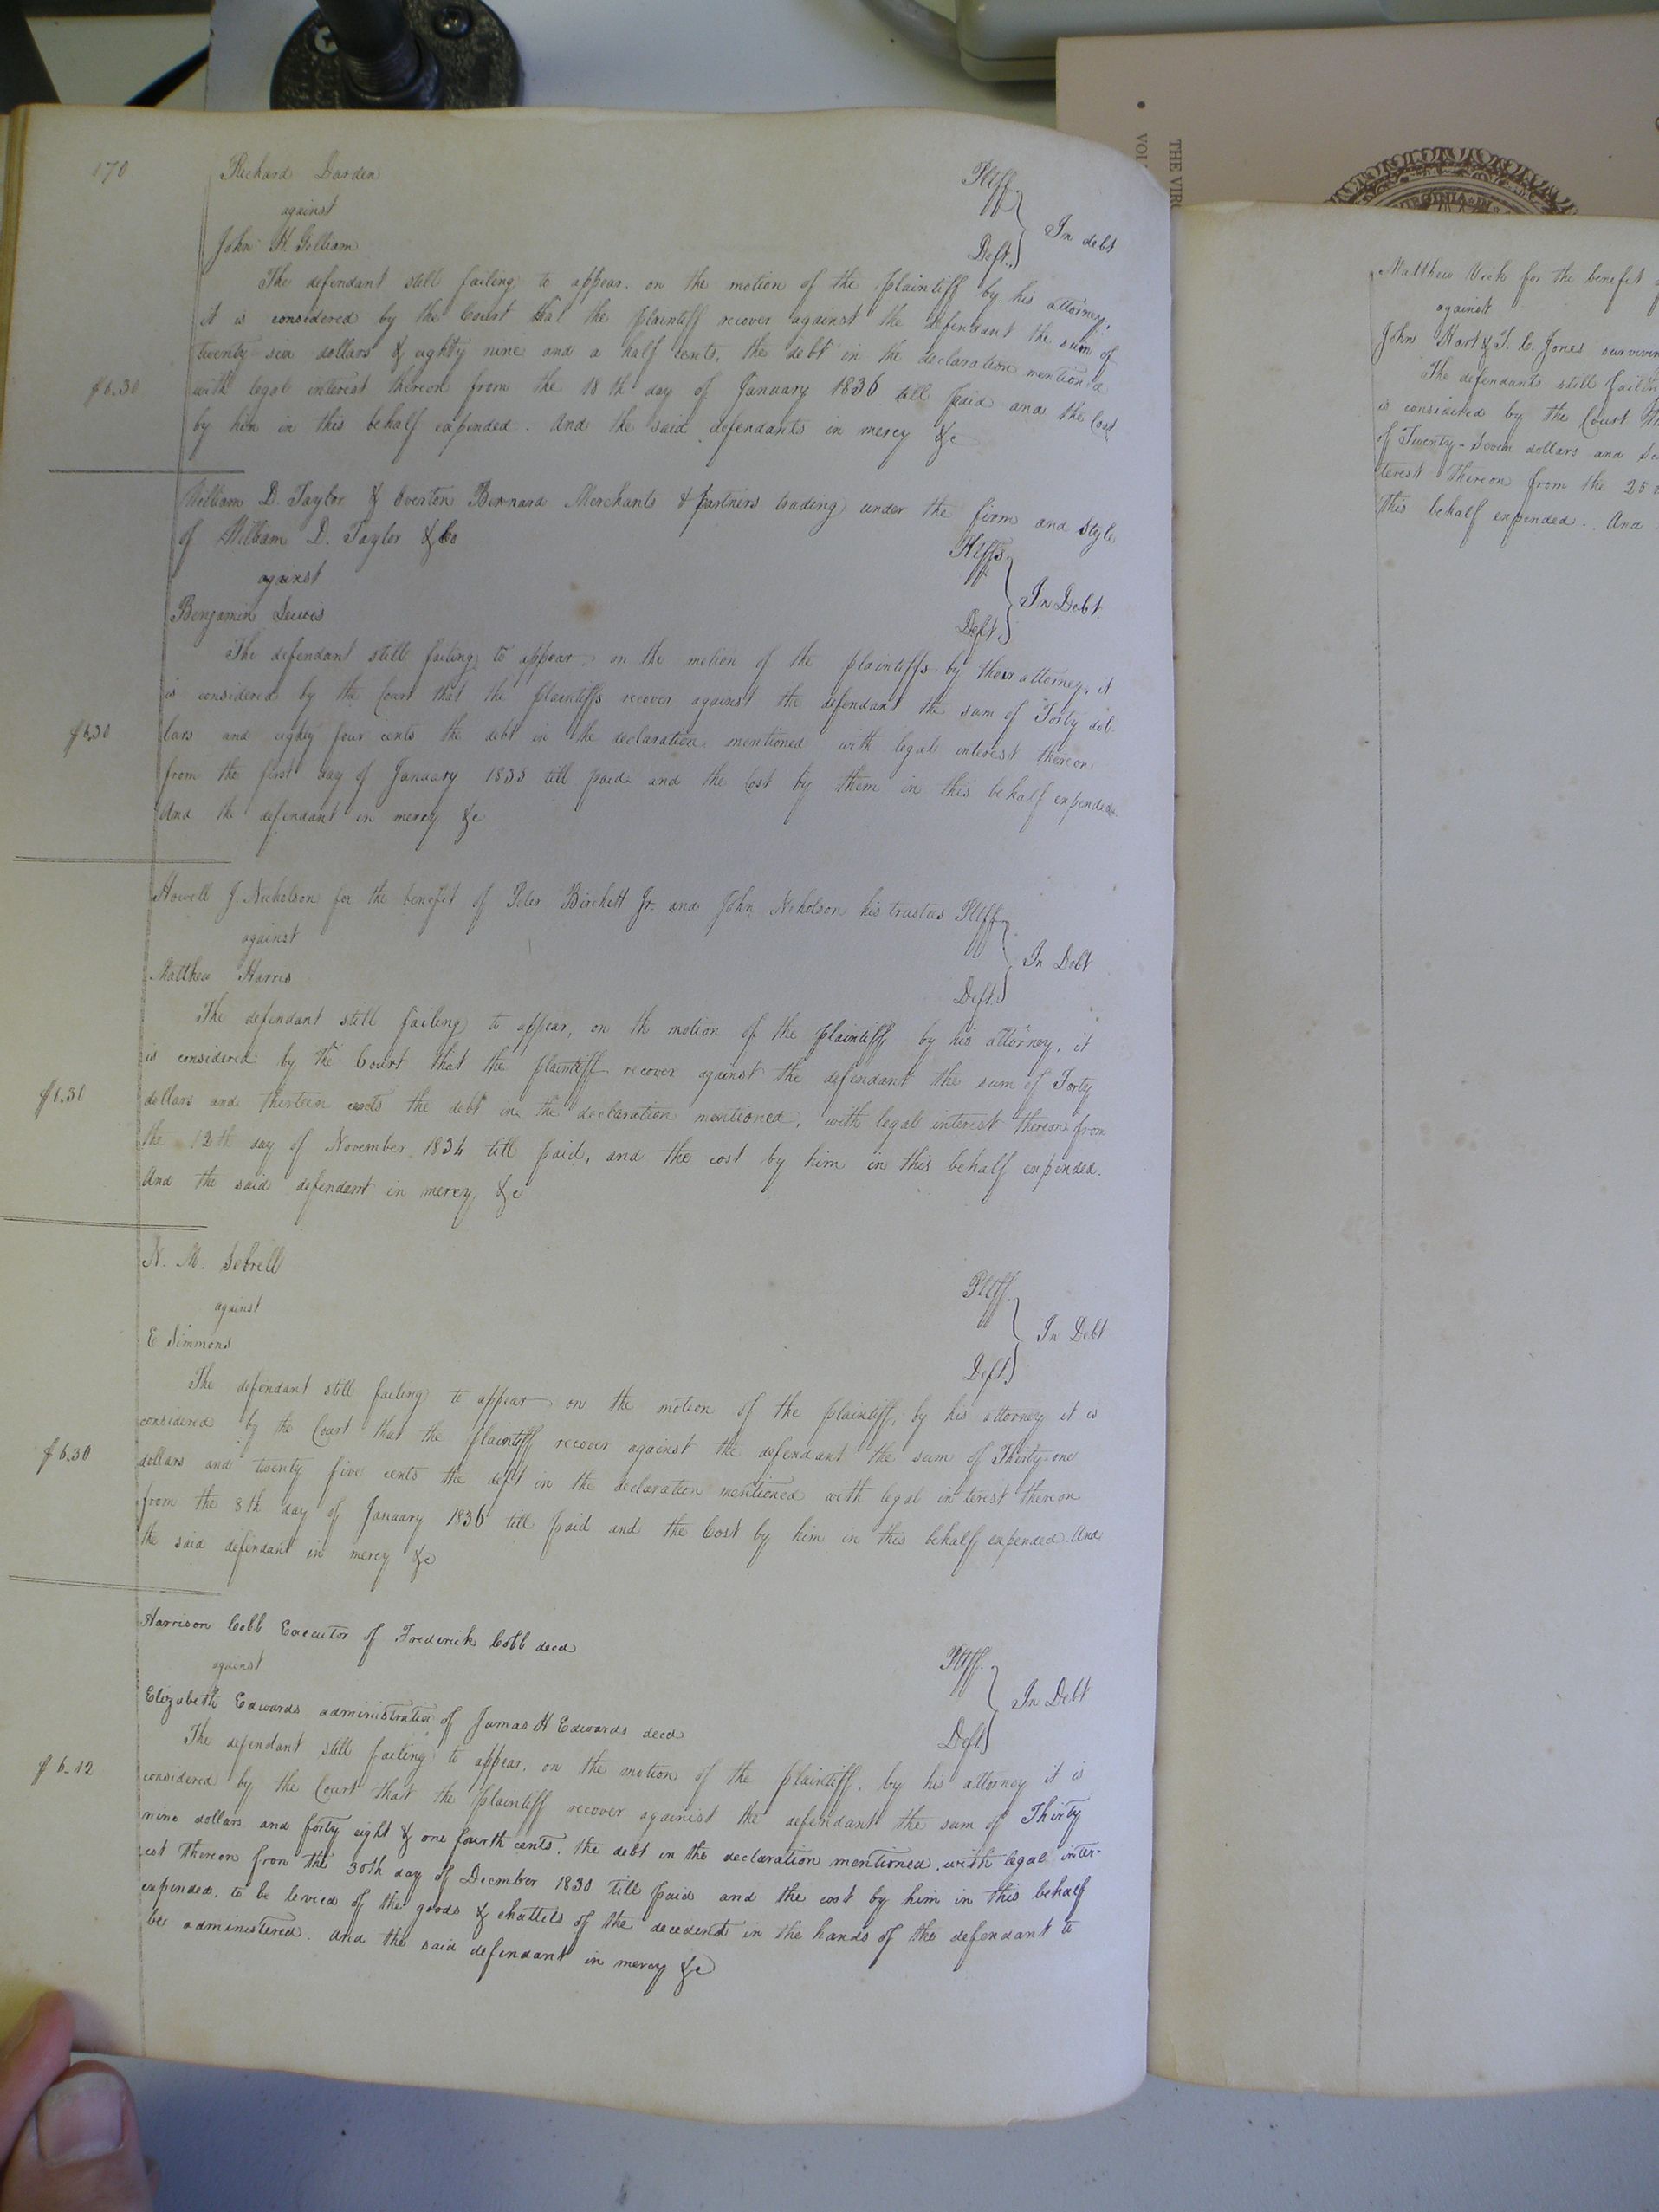 170
Richard Darden Pltff
against In debt
John H Gilliam Deft.
The defendant still failing to appear. on the motion of the plaintiff by his attorney.
it is considered by the Court that the plaintiff recover against the defendant the sum of
twenty six dollars & eighty nine and a half cents, the debt in the declaration mention'd
$6.30 with legal interest thereon from the 18th day of January 1836 till paid and the Cost
by him in this behalf expended. And the said defendants in mercy &c
William D. Taylor & Overton Bernard Merchants & partners trading under the firm and Style
of William D. Taylor & Co Pltffs.
against In Debt.
Benjamin Lewis Deft.
The defendant still failing to appear. on the motion of the plaintiffs by their attorney, it
is considered by the Court that the plaintiffs recover against the defendant the sum of Forty dol
$6.30 lars and eighty four cents the debt in the declaration mentioned with legal interest thereon
from the first day of January 1835 till paid and the Cost by them in this behalf expended
And the defendant in mercy &c
Howell J. Nicholson for the benefit of Peter Birchett Jr. and John Nicholson his trustees Pltff
against In Debt
Matthew Harris Deft.
The defendant still failing to appear, on the motion of the plaintiff by his attorney, it
is considered by the Court that the plaintiff recover against the defendant the sum of Forty
dollars and thirteen cents the debt in the declaration mentioned, with legal interest thereon from
the 12th day of November 1834 till paid, and the cost by him in this behalf expended.
And the said defendant in mercy &c
N. M. Sebrell Pltff.
against In Debt
E Simmons Deft.
The defendant still failing to appear on the motion of the plaintiff, by his attorney it is
considered by the Court that the plaintiff recover against the defendant the sum of Thirty-one
$6.30 dollars and twenty five cents the debt in the declaration mentioned with legal interest thereon
from the 8th day of January 1836 till paid and the Cost by him in this behalf expended. And
the said defendant in mercy &c
Harrison Cobb Executor of Frederick Cobb decd Pltff.
against In Debt
Elizabeth Edwards administratix of James H Edwards decd Deft
The defendant still failing to appear, on the motion of the plaintiff, by his attorney it is
$6.12 considered by the Court that the plaintiff recover against the defendant the sum of Thirty
nine dollars and forty eight & one fourth cents, the debt in the declaration mentioned, with legal inter-
est thereon from the 30th day of December 1830 till paid and the cost by him in this behalf
expended. to be levied of the goods & chattels of the decedent in the hands of the defendant to
be administered. And the said defendant in mercy &c
Matthew Vick for the benefit
against
John Hart & T. C. Jones
The defendants still
is considered by the Court
of Twenty-Seven dollars and
terest thereon from the 25
this behalf expended. And
THE
VIRGINIA